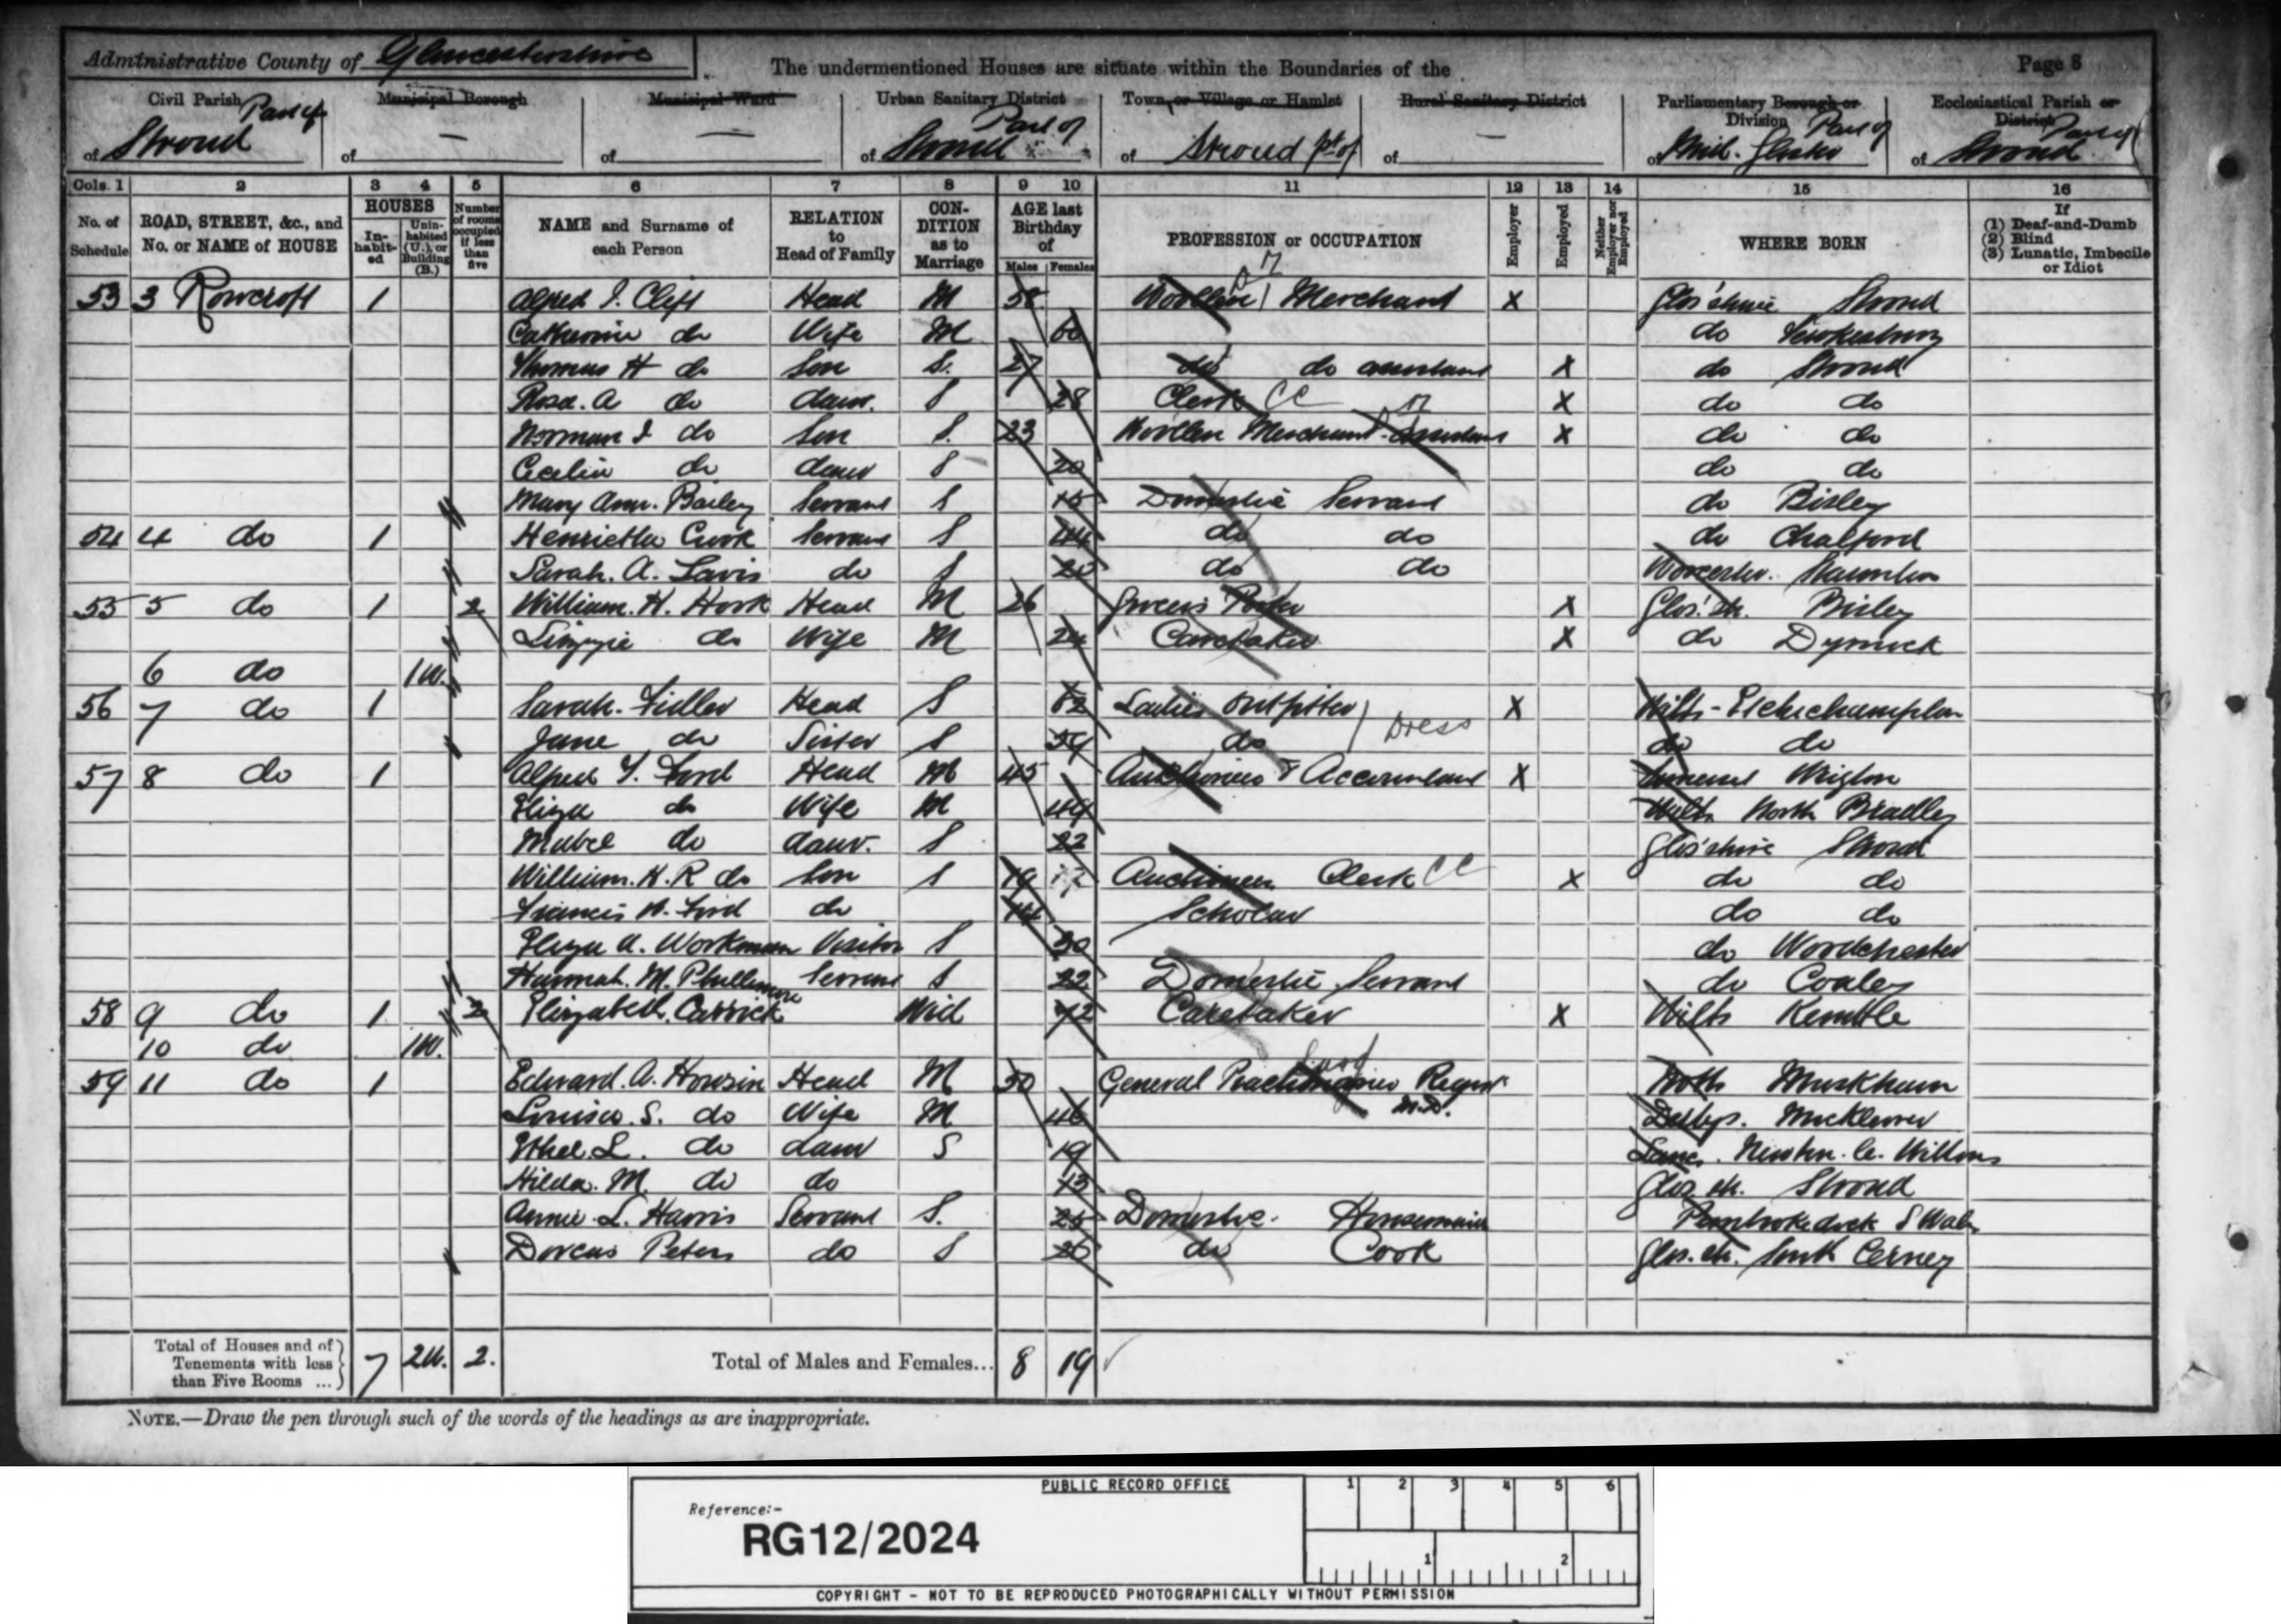 Administrative County of Gloucestershire
The undermentioned Houses are situate within the Boundaries of the
Page 8
Civil Parish Part of
of Stroud
Municipal Borough
of —
Municipal Ward
of —
Urban Sanitary District Part of
of Stroud
Town or Village or Hamlet
of Stroud pt of
Rural Sanitary District
of —
Parliamentary Borough or Division Part of
of Mid. Glosho
Ecclesiastical Parish or District Part of
of Stroud
Cols. 1 2 3 4 5 6 7 8 9 10 11 12 13 14 15 16
No. of Schedule
ROAD, STREET, &c., and No. or NAME of HOUSE
HOUSES
In-habit-ed
Unin-habited (U.), or Building (B.)
Number of rooms occupied if less than five
NAME and Surname of each Person
RELATION to Head of Family
CON-DITION as to Marriage
AGE last Birthday of
Males Females
PROFESSION or OCCUPATION
Employer
Employed
Neither Employer nor Employed
WHERE BORN
If
(1) Deaf-and-Dumb
(2) Blind
(3) Lunatic, Imbecile or Idiot
53 3 Rowcroft 1 Alfred J. Clift Head M 58 Woollen Merchant X Glos'shire Stroud
Catherine do Wife M 60 do Tewkesbury
Thomas H do Son S. 27 do do assistant X do Stroud
Rosa. A do daur. S 28 Clerk CC X do do
Norman J do Son S. 23 Woollen Merchant Assistant X do do
Cecelia do daur S 20 do do
Mary Ann. Bailey Servant S 15 Domestic Servant do Bisley
54 4 do 1 Henrietta Cook Servant S 44 do do do Chalford
Sarah. A. Lavis do S 20 do do Worcester. Staunton
55 5 do 1 2 William. H. Hook Head M 26 Grocers Porter X Glos.'sh. Bisley
Lizzie do Wife M 24 Caretaker X do Dymock
6 do 1U.
56 7 do 1 Sarah. Fidler Head S 62 Ladies Outfitter Dress X Wilts -
Jane do Sister S 59 do do do
57 8 do 1 Alfred J. Ford Head M 45 Auctioneer & Accountant X Somerset Wrighton
Eliza do Wife M 49 Wilts North Bradley
Mabel do daur. S 22 Glos'shire Stroud
William. H. R do Son S 19 Auctioneers Clerk CC X do do
Francis W. Ford do 14 Scholar do do
Eliza A. Workman Visitor S 30 do Woodchester
Hannah. M. Phillimore Servant S 22 Domestic Servant do Coaley
58 9 do 1 2 Elizabeth Carrick Wid 72 Caretaker X Wilts Kemble
10 do 1U.
59 11 do 1 Edward. A. Howsin Head M 50 General Practitioner Regist M.D. Notts Muskham
Louisa. S. do Wife M 46 Derbys. Mickleover
Ethel. L. do daur S 19 Lancs. Newton. le. Willows
Hilda. M. do do 13 Glos. sh. Stroud
Annie. L. Harris Servant S. 25 Domestic. Housemaid Pembroke dock S Wales
Dorcas Peters do S 26 do Cook Glos. sh. South Cerney
Total of Houses and of Tenements with less than Five Rooms ... 7 2U. 2.
Total of Males and Females... 8 19
NOTE.—Draw the pen through such of the words of the headings as are inappropriate.
PUBLIC RECORD OFFICE
1 2 3 4 5 6
Reference:-
RG12/2024
1 2
COPYRIGHT - NOT TO BE REPRODUCED PHOTOGRAPHICALLY WITHOUT PERMISSION